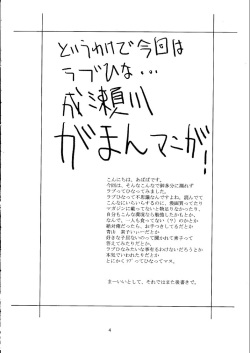 というわけで今回は
ラブひな...
成瀬川
がまんマンガ!
こんにちは、おぼぼです。
今回は、そんなこんなで
ラブってひなってみました。
ラブひなって不思議なんですよね。読んでて
こんなにいたいらしするのに、
マガジンに載ってないと物足りなかったり、
自分もこんな環境なら勉強したかもとか、
なんで、一人も食ってない(?)のかとか
絶対俺だったら、お手つきしてるだとか
青山 素子いぃーだとか
好きな子居ないのって聞かれて素子って
答えてみたりだとか、
ラブひなみたいな事有るわけないだろうとか
本気でいわれたりだとか
とにかくラブってひなってマス。
まーいいとして、それではまた後書きで。
4